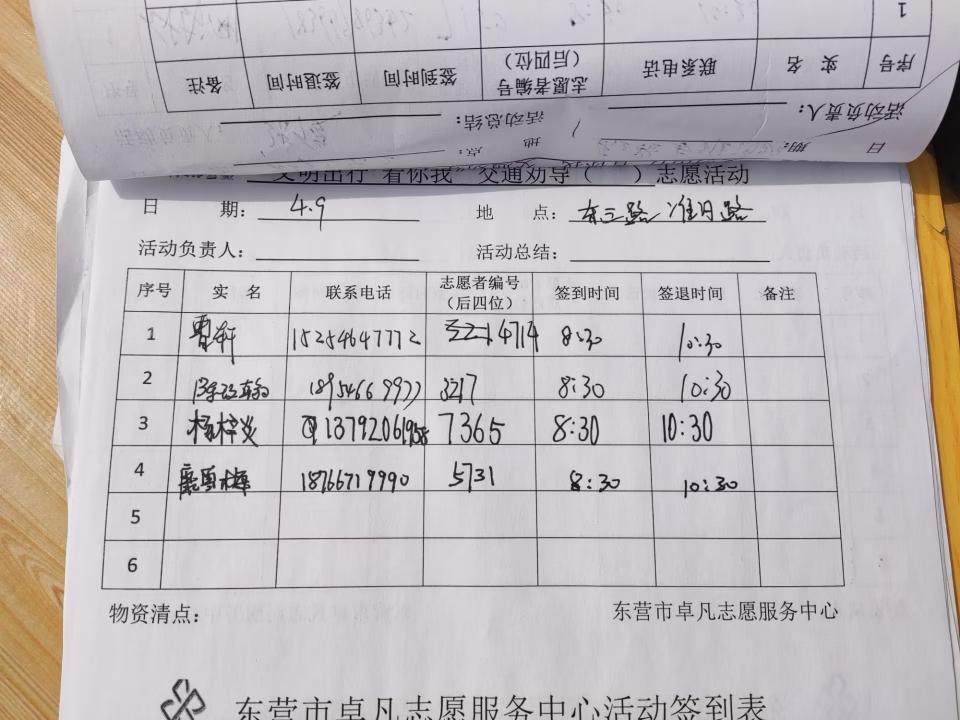 1
序号 实 名 联系电话 志愿者编号（后四位） 签到时间 签退时间 备注
活动负责人： 活动总结：
日 期： 地 点：
文明出行 看你我”交通劝导（ ）志愿活动
日 期： 4.9 地 点： 东三路 淮河路
活动负责人： 活动总结：
序号 实 名 联系电话 志愿者编号（后四位） 签到时间 签退时间 备注
1 曹轩 15254647772 4714 8:30 10:30
2 18954669977 3217 8:30 10:30
3 杨梓炎 13792061958 7365 8:30 10:30
4 18766719990 5731 8:30 10:30
5
6
物资清点： 东营市卓凡志愿服务中心
东营市卓凡志愿服务中心活动签到表